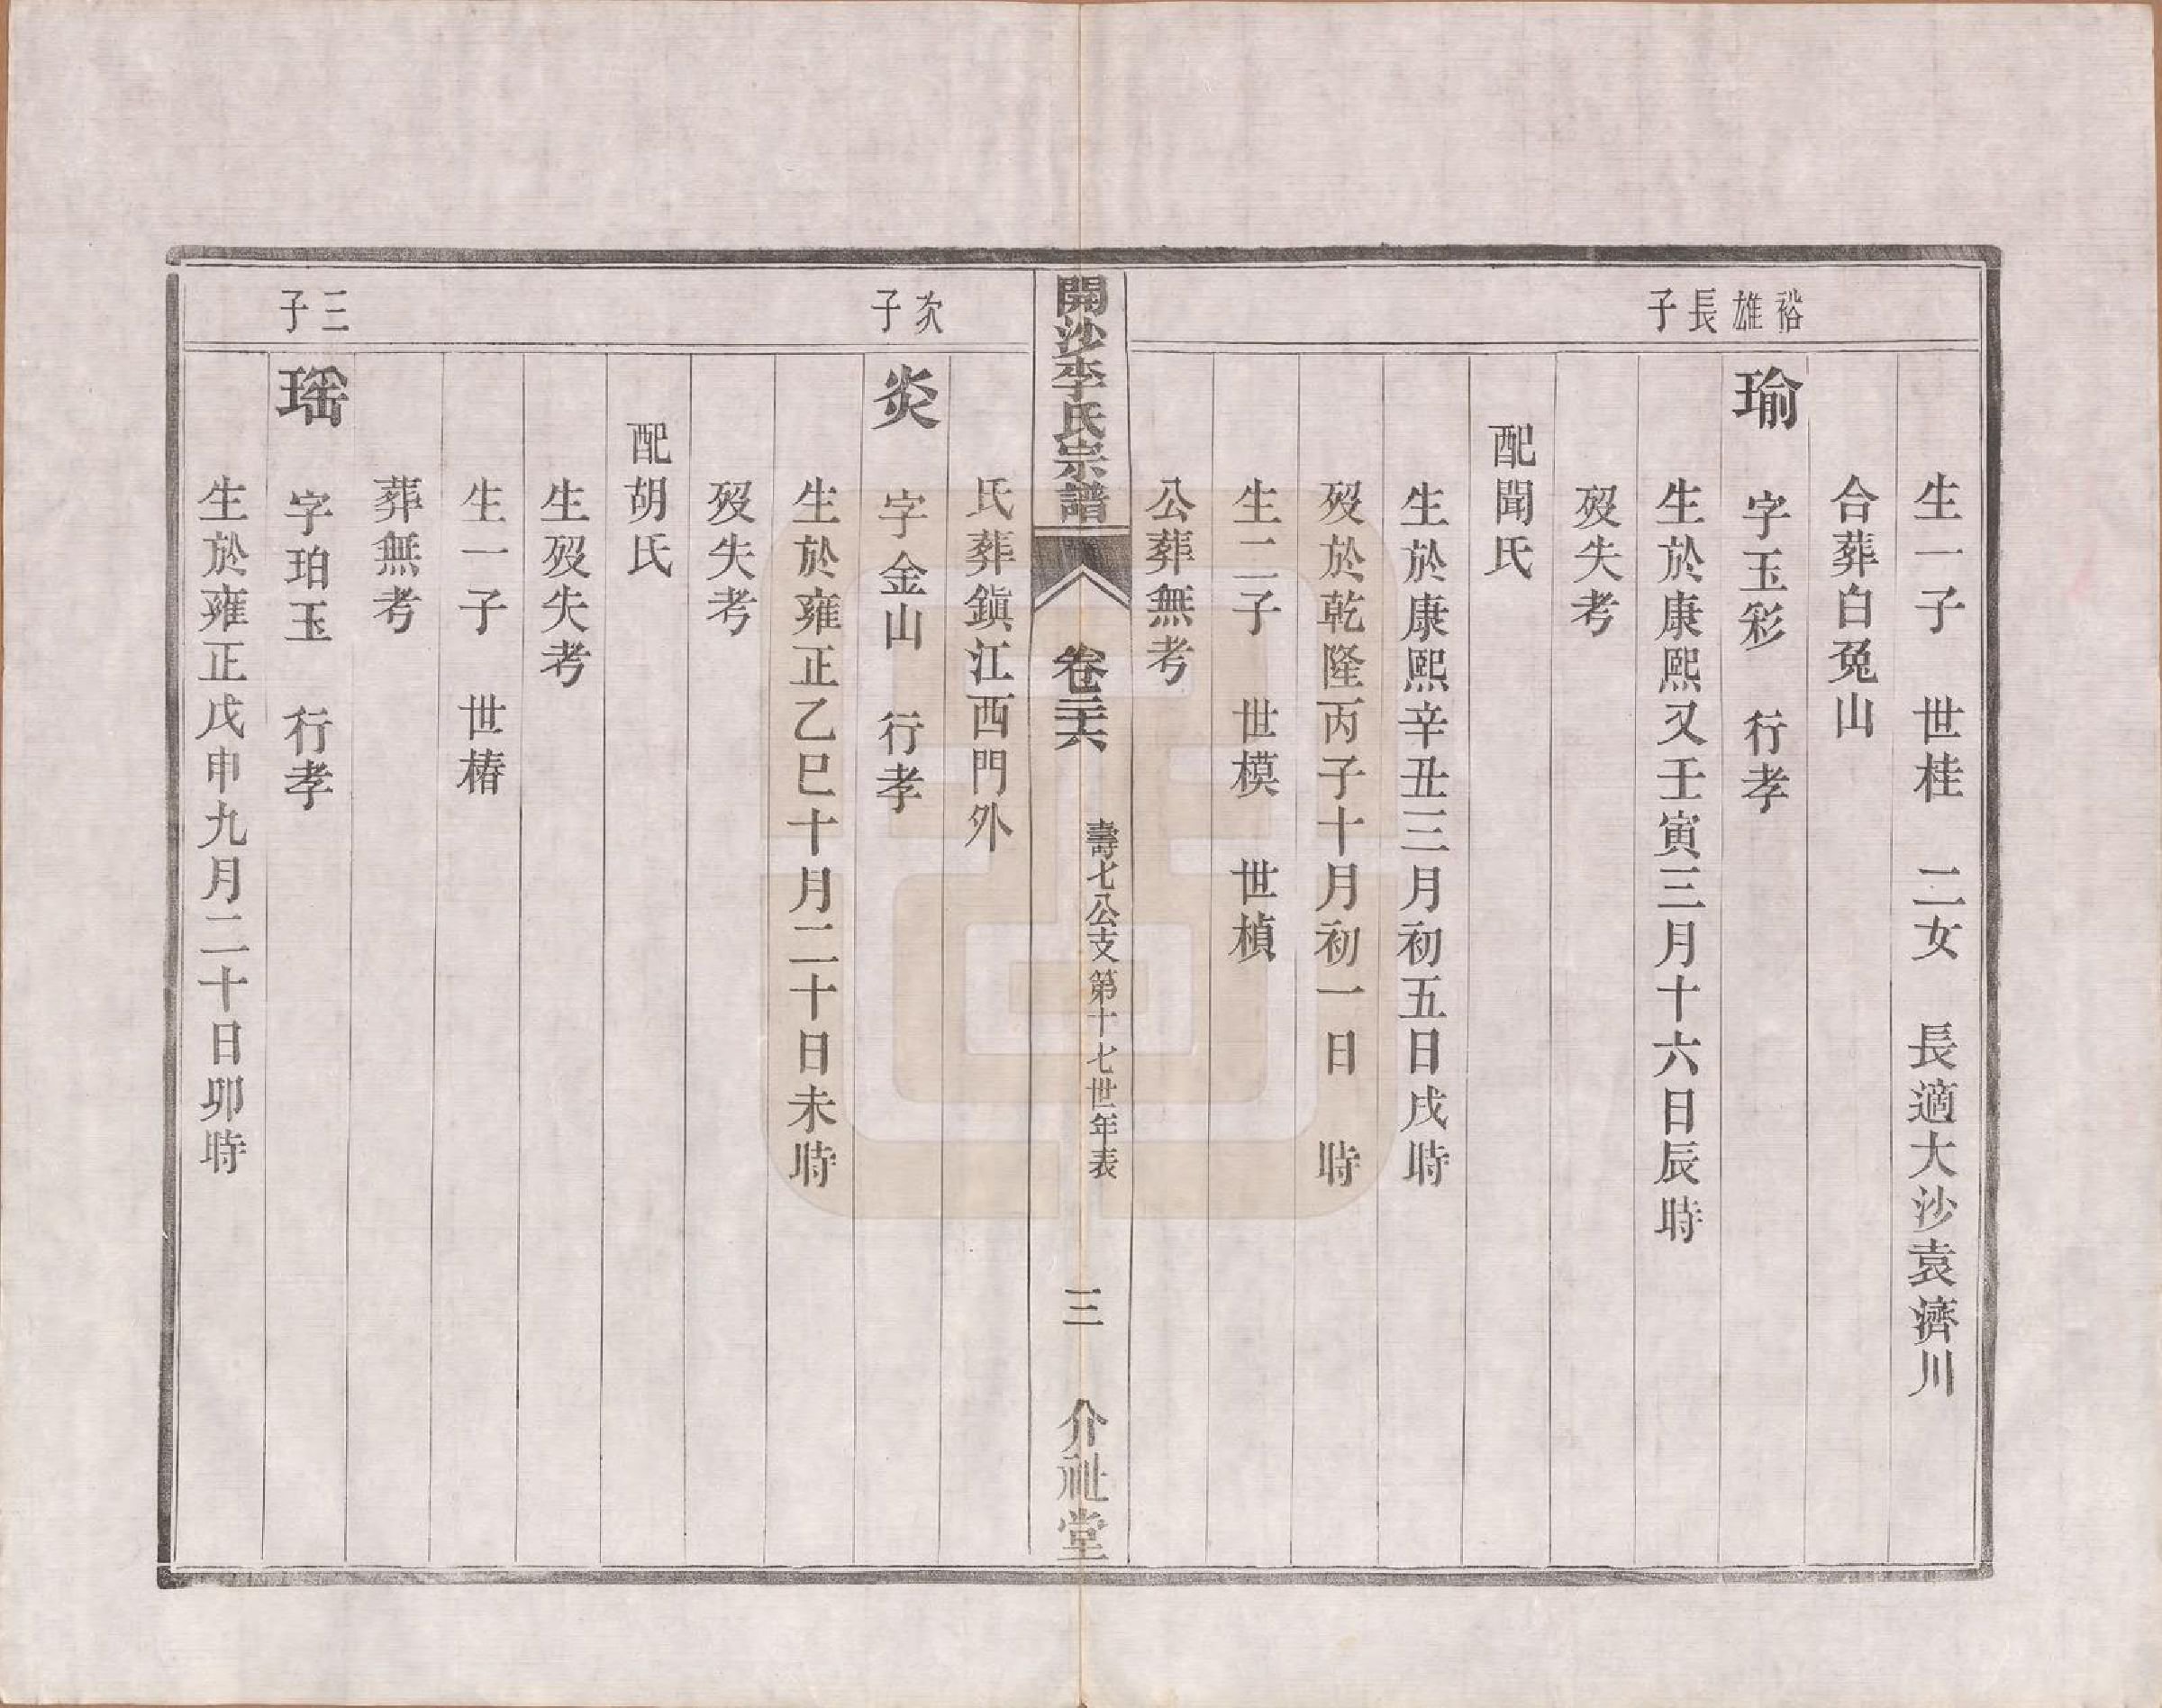 生一子　世桂　二女　長適大沙袁濟川
合葬白兔山
裕雄長子
瑜　字玉彩　行孝
生於康熙又壬寅三月十六日辰時
歿失考
配聞氏
生於康熙辛丑三月初五日戌時
歿於乾隆丙子十月初一日　時
生二子　世模　世楨
公葬無考
開沙李氏宗譜　卷二十六　壽七公支第十七世年表　三　介祉堂
氏葬鎭江西門外
次子
炎　字金山　行孝
生於雍正乙巳十月二十日未時
歿失考
配胡氏
生歿失考
生一子　世椿
葬無考
三子
瑶　字珀玉　行孝
生於雍正戊申九月二十日卯時